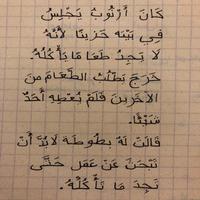 كَانَ أَرْنُوبُ يَجْلِسُ
فِي بَيْتِهِ حَزِينًا لأَنَّهُ
لَا يَجِدُ طَعَامًا يَأْكُلُهُ.
خَرَجَ يَطْلُبُ الطَّعَامَ مِنَ
الآخَرِينَ فَلَمْ يُعْطِهِ أَحَدٌ
شَيْئًا.
قَالَتْ لَهُ بَطُوطَة لَابُدَّ أَنْ
تَبْحَثَ عَنْ عَمَلٍ حَتَّى
تَجِدَ مَا يَأْكُلُهُ.